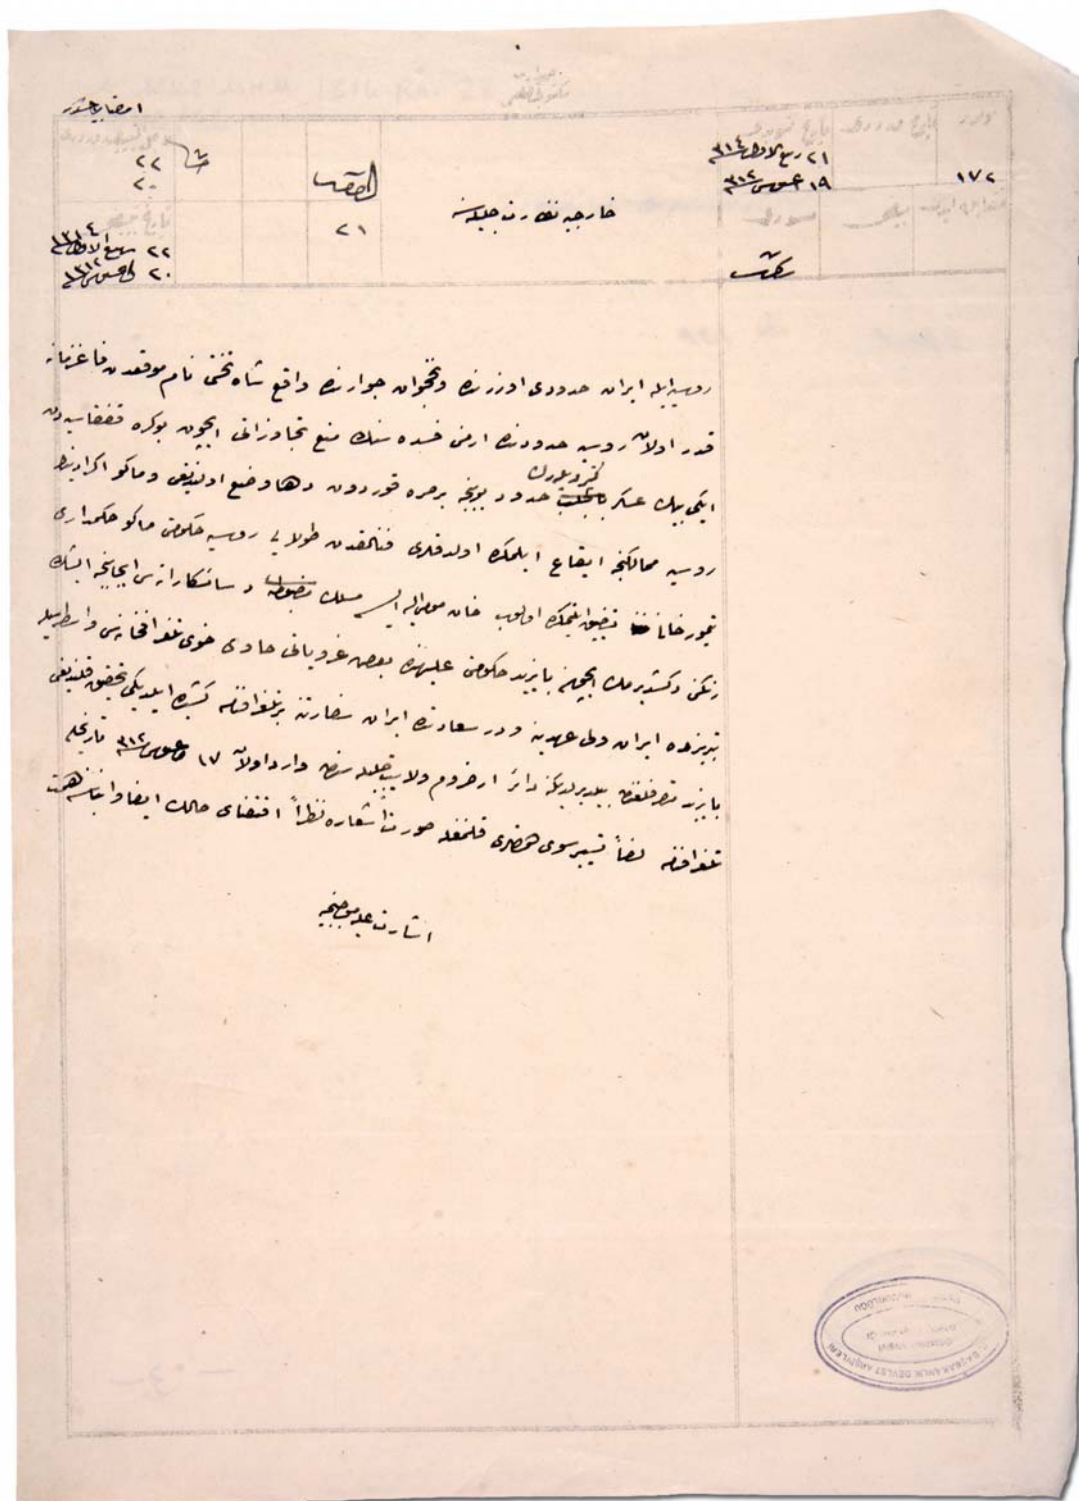 ١٧٢
٢١ ربيع الاول سنه ٣١٤
١٩ اغستوس سنه ٣١٢
خارجيه نظارت جليله سنه
٢١
٢٢
٢٠
٢٢ ربيع الاول سنه ١٣١٤
٢٠ اغستوس سنه ١٣١٢
روسيه ايله ايران حدودى اوزرنده ونخجوان جوارنده واقع شاه تختى نام موقعدن قاغزمانه
قدر اولان روسيه حدودنده ارمنى فسده سنك منع تجاوزاتى ايچون بوكره قفقاسيه دن
ايكى بيك عسكر كتيرديلرك حدود بوينجه برصره قوردون دها وضع اولنديغى وماكو اكرادينك
روسيه ممالكنجه ايقاع ايلمكده اولدقلرى فنالقدن طولايى روسيه حكومتى ماكو حكمدارى
تيمور خانى تضييق ايتمكده اولوب خان مومى اليه ايسه مسلك دسائسكارانه سى ايجابنجه ايشك
رنكنى دكشديرمك ايچون بايزيد حكومتى عليهنده بعض غروياتى حاوى خوى تلغرافخانه سى واسطه سيله
تبريزده ايران ولى عهدينه ودر سعادتده ايران سفارتنه بر تلغرافنامه كشيده ايلديكى تحقيق قلنديغى
بايزيد متصرفلغندن بيلديرلديكنه دائر ارضروم ولايت جليله سندن وارد اولان ١٧ اغستوس سنه ٣١٢ تاريخلى
تلغرافنامه لفاً تسيير سوى همم‌لرى قلنمغله صورت اشعاره نظراً اقتضاى حالك ايفا وانباسنه همت